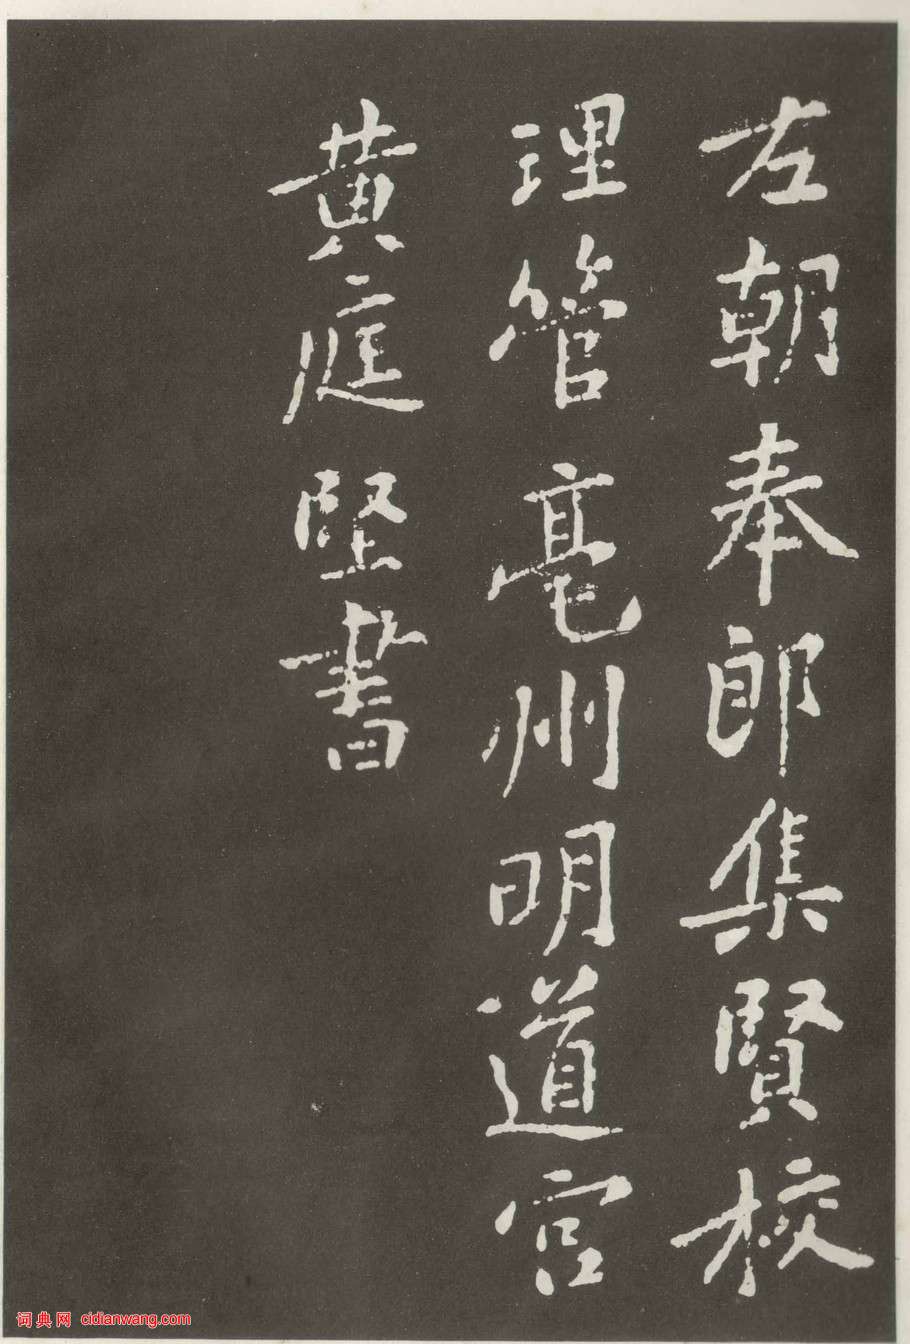 左朝奉郎集賢校
理管亳州明道宮
黄庭堅書
词典网 cidianwang.com